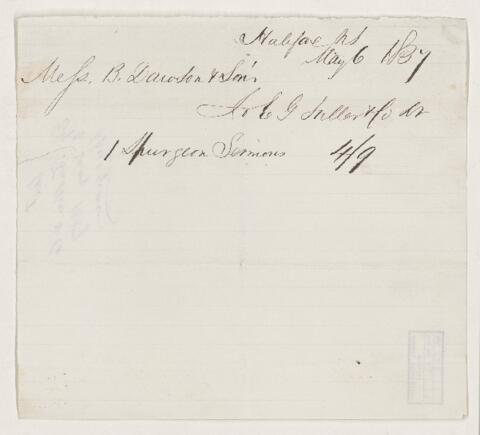 Halifax NS
May 6 1857
Mess. B. Dawson & Son's
To E G Fuller & Co Dr
1 Spurgeon Sermons 4/9